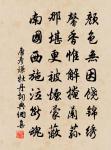 顏色無因饒錦繡
馨香惟解掩蘭蓀
那堪更被煙蒙蔽
南國西施泣斷魂
唐彥謙牡丹